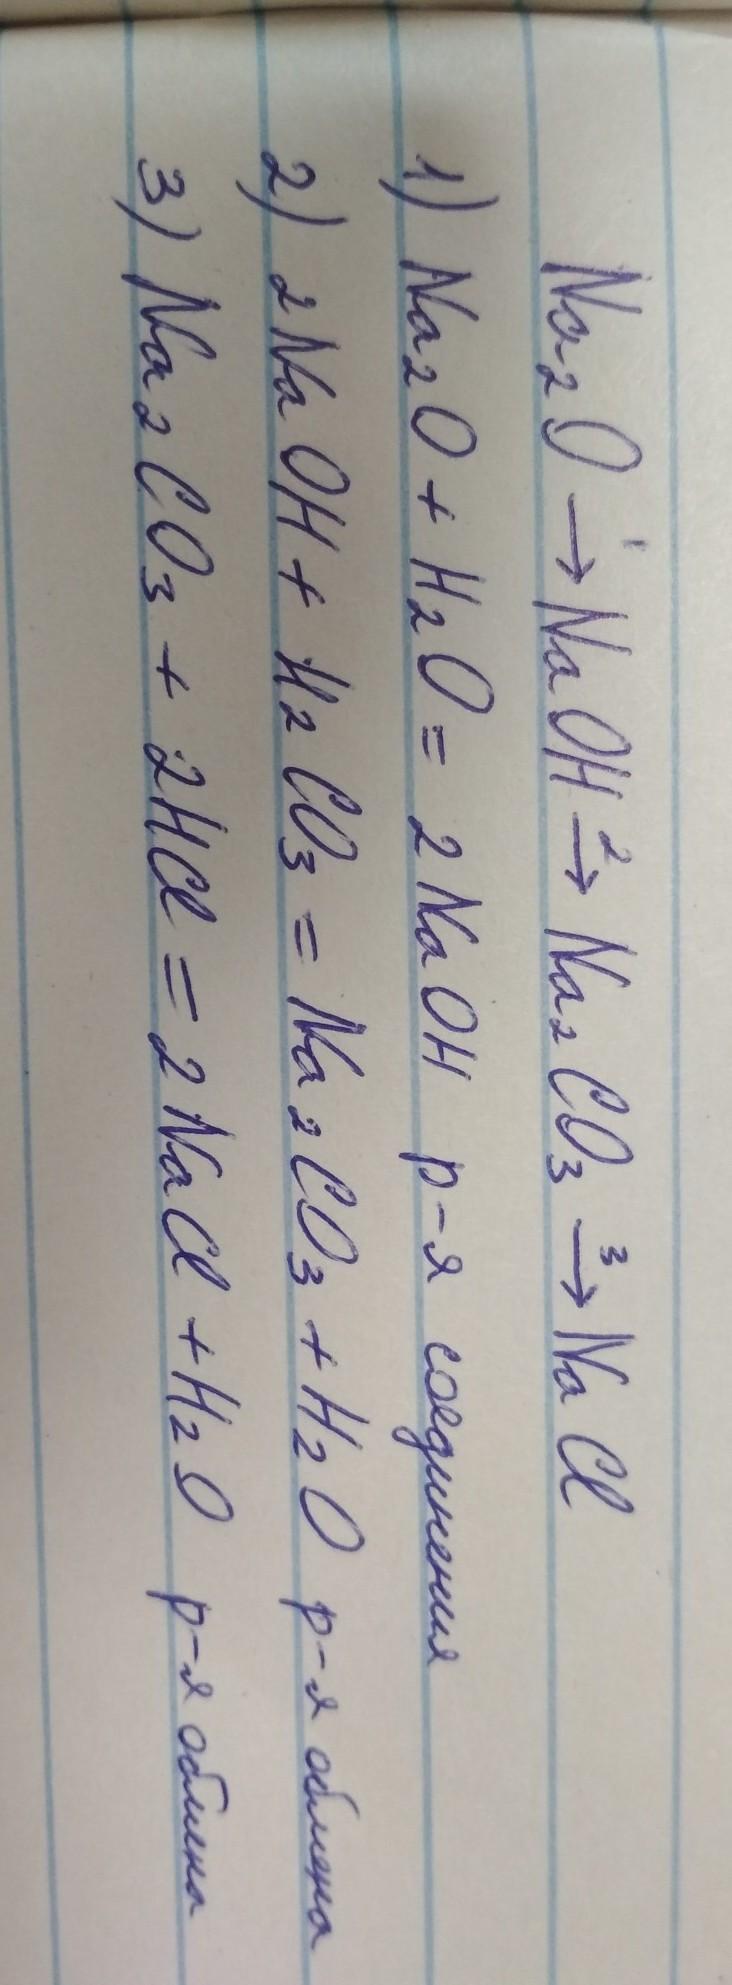 Na₂O →¹ NaOH →² Na₂CO₃ →³ NaCl
1) Na₂O + H₂O = 2NaOH р-я соединения
2) 2NaOH + H₂CO₃ = Na₂CO₃ + H₂O р-я обмена
3) Na₂CO₃ + 2HCl = 2NaCl + H₂O р-я обмена